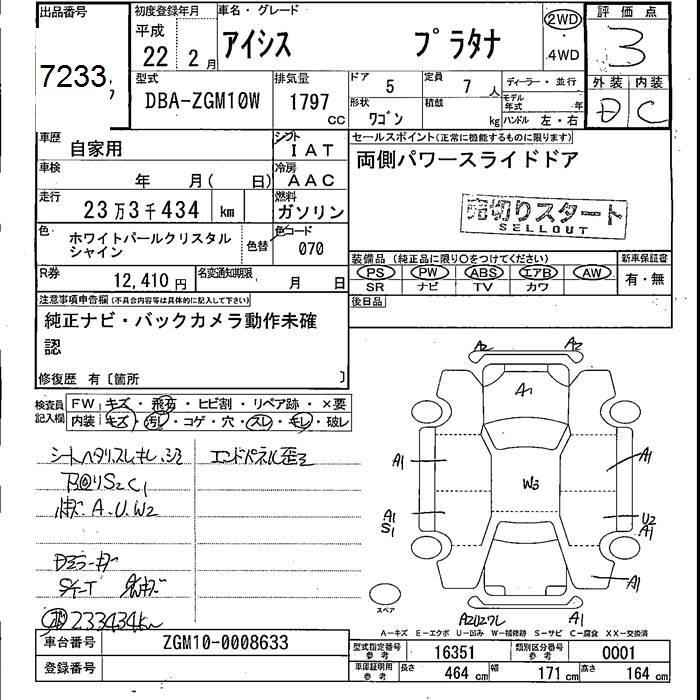 出品番号
7233
初度登録年月
平成
22 2 月
車名・グレード
アイシス プラタナ
2WD
・
4WD
評価点
3
外装 内装
D C
型式
DBA-ZGM10W
排気量
1797
CC
ドア 5
定員 7 人
形状 ワゴン
積載 kg
ディーラー・並行
モデル年式 年
ハンドル 左・右
車歴
自家用
シフト
IAT
車検
年 月( 日)
冷房
AAC
走行
23万3千434 km
燃料
ガソリン
色
ホワイトパールクリスタル
シャイン
色替
色コード
070
R券
12,410 円
名変通知期限
月 日
セールスポイント(正常に機能するものに限ります)
両側パワースライドドア
売切りスタート
SELLOUT
装備品 (純正品に限り○をつけてください)
PS PW ABS エアB AW
SR ナビ TV カワ
新車保証書
有・無
後日品
注意事項申告欄(不具合内容等は具体的に記入して下さい)
純正ナビ・バックカメラ動作未確
認
修復歴 有〔箇所 〕
検査員
記入欄
FW キズ・飛石・ヒビ割・リペア跡・×要
内装 キズ・汚レ・コゲ・穴・スレ・キレ・破レ
エンドパネル歪ミ
下回りS2C1
A.U.W2
233434km
A2 A2
A1
A1 A1
W3
A1
S1
U2
A1
A1
A1
スペア
A-キズ E-エクボ U-凹み W-補修跡 S-サビ C-腐食 XX-交換済
車台番号
ZGM10-0008633
登録番号
型式指定番号
参考
16351
類別区分番号
参考
0001
車庫証明用
参考
長さ 464 cm
幅 171 cm
高さ 164 cm